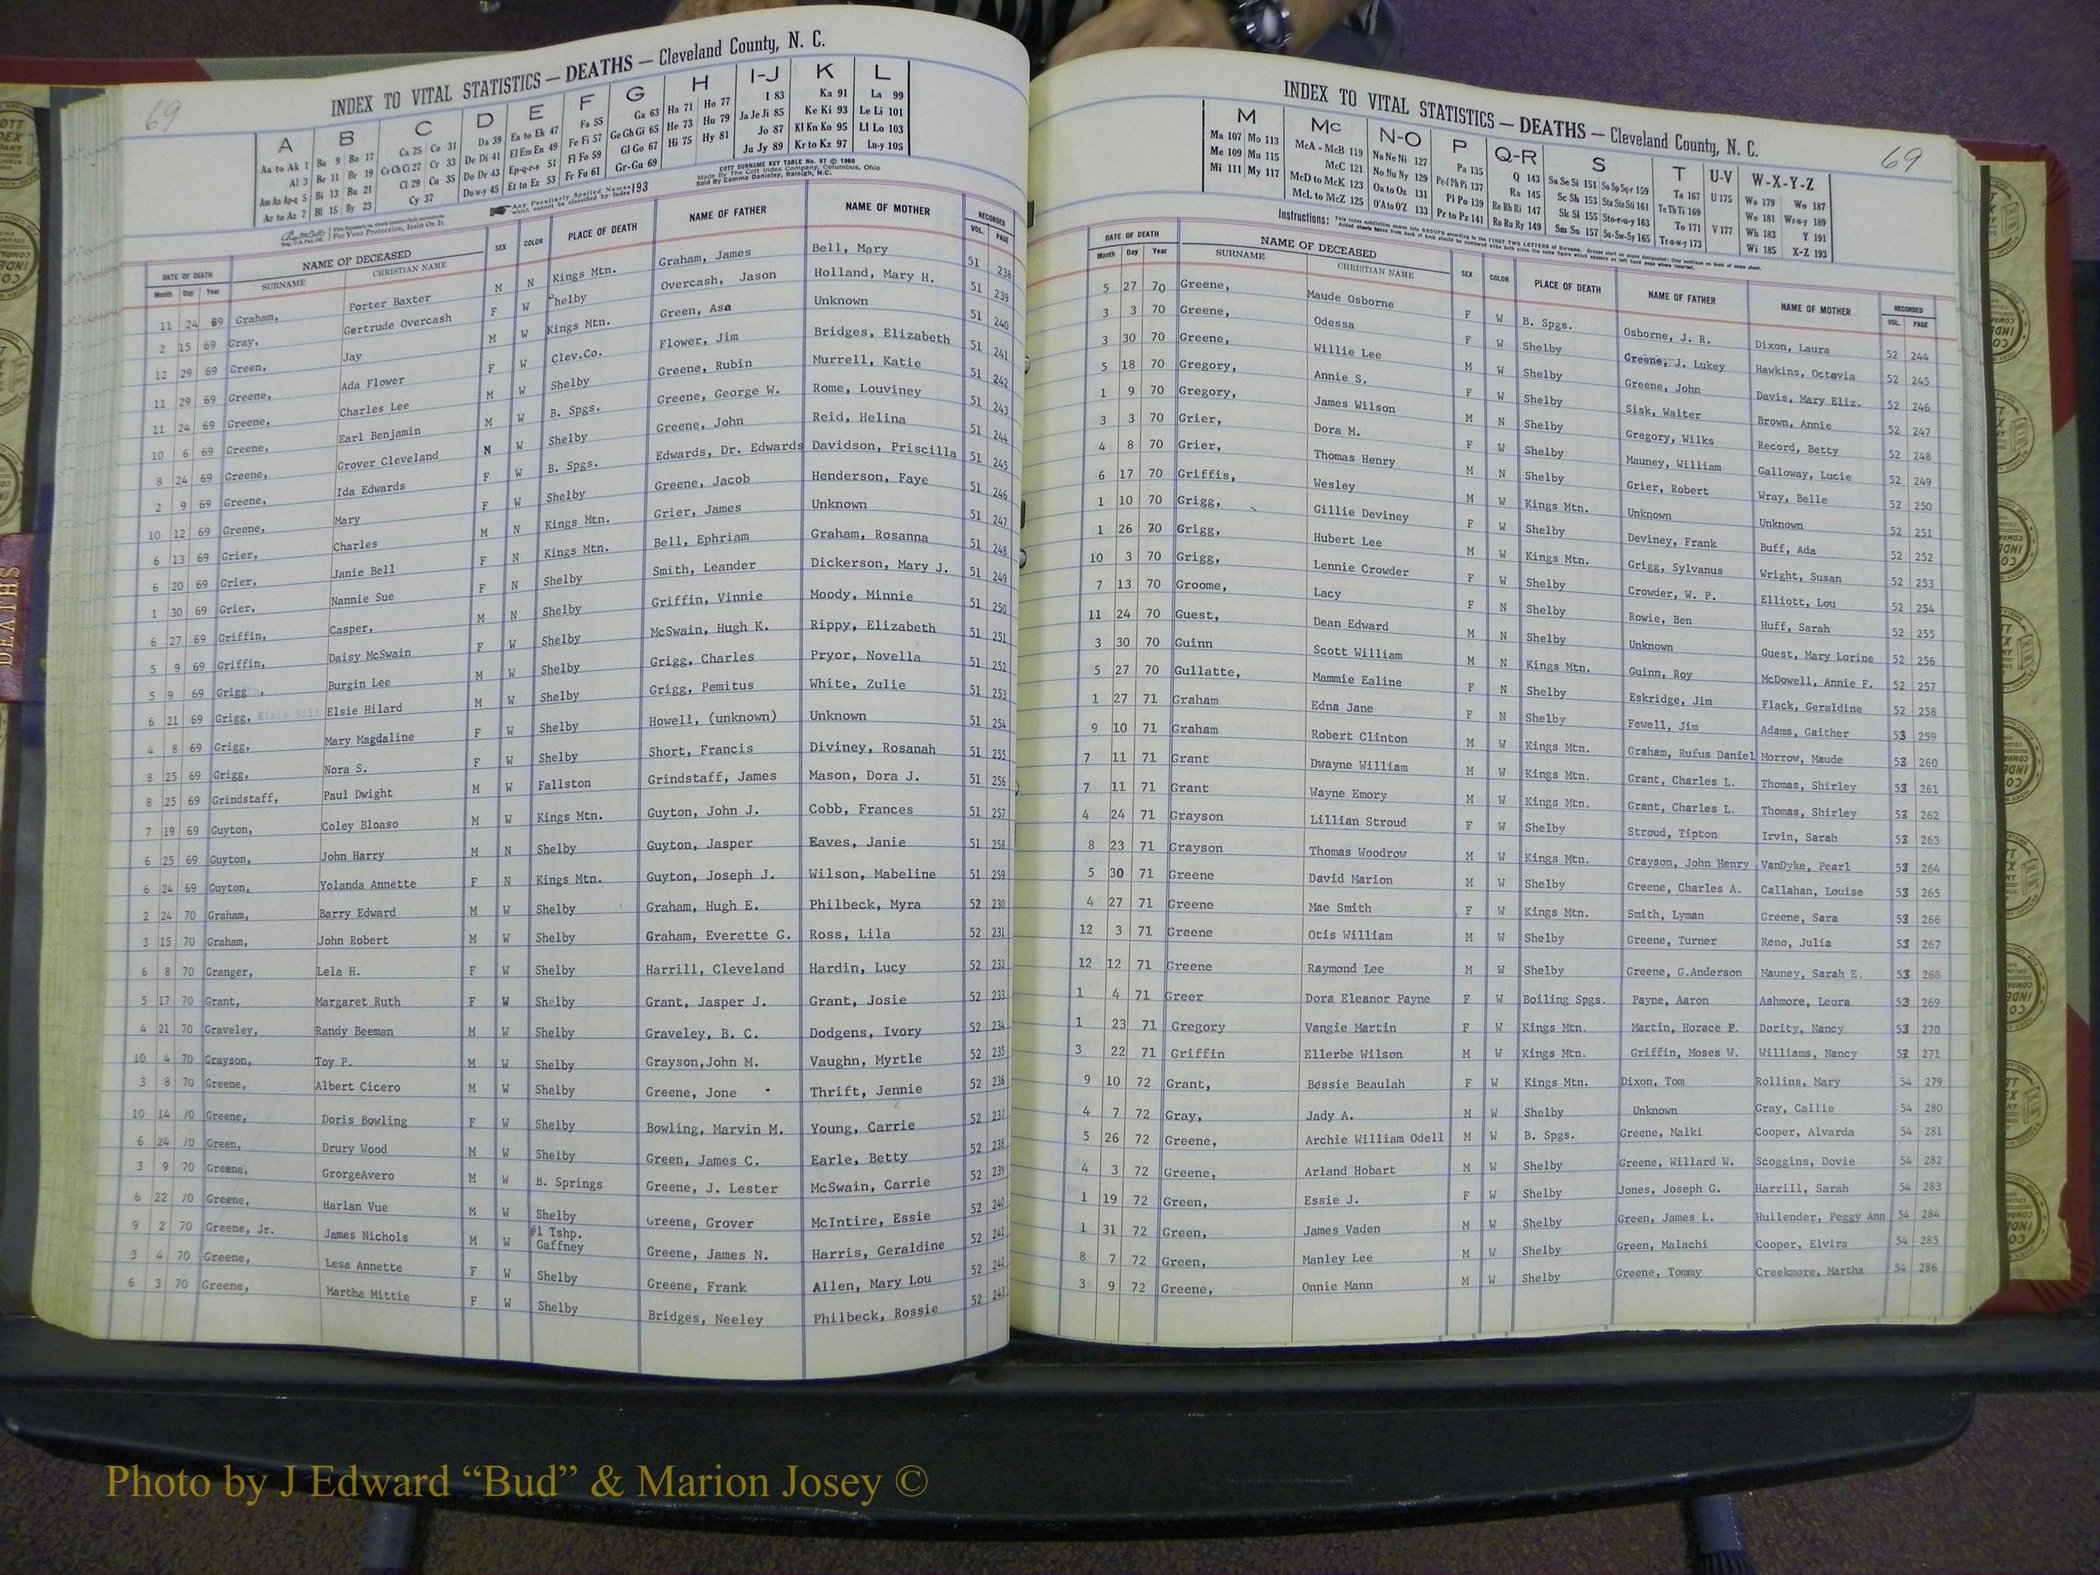 69
INDEX TO VITAL STATISTICS — DEATHS — Cleveland County, N. C.
A B C D E F G H I-J K L
Aa to Ak 1 Ba 9 Bo 17 Ca 25 Co 31 Da 39 Ea to Ek 47 Fa 55 Ga 63 Ha 71 Ho 77 I 83 Ka 91 La 99
Al 3 Be 11 Br 19 Ce Ch Ci 27 Cr 33 De Di 41 El Em En 49 Fe Fi 57 Ge Gh Gi 65 He 73 Hu 79 Ja Je Ji 85 Ke Ki 93 Le Li 101
Am An Ap-q 5 Bi 13 Bu 21 Cl 29 Cu 35 Do Dr 43 Ep-q-r-s 51 Fl Fo 59 Gl Go 67 Hi 75 Hy 81 Jo 87 Kl Kn Ko 95 Ll Lo 103
Ar to Az 7 Bl 15 By 23 Cy 37 Du-w-y 45 Et to Ez 53 Fr Fu 61 Gr-Gu 69 Ju Jy 89 Kr to Kz 97 Lu-y 105
COTT SURNAME KEY TABLE No. 97 © 1960
Made By The Cott Index Company, Columbus, Ohio
Sold By Comma Danieley, Raleigh, N.C.
For Your Protection, Insist On It.
Any Peculiarly Spelled Names which cannot be classified by Index 193
DATE OF DEATH Month Day Year NAME OF DECEASED SURNAME CHRISTIAN NAME SEX COLOR PLACE OF DEATH NAME OF FATHER NAME OF MOTHER RECORDED VOL. PAGE
11 24 69 Graham, Porter Baxter M N Kings Mtn. Graham, James Bell, Mary 51 238
2 15 69 Gray, Gertrude Overcash F W Shelby Overcash, Jason Holland, Mary H. 51 239
12 29 69 Green, Jay M W Kings Mtn. Green, Asa Unknown 51 240
11 29 69 Greene, Ada Flower F W Clev.Co. Flower, Jim Bridges, Elizabeth 51 241
11 24 69 Greene, Charles Lee M W Shelby Greene, Rubin Murrell, Katie 51 242
10 6 69 Greene, Earl Benjamin M W B. Spgs. Greene, George W. Rome, Louviney 51 243
8 24 69 Greene, Grover Cleveland M W Shelby Greene, John Reid, Helina 51 244
2 9 69 Greene, Ida Edwards F W B. Spgs. Edwards, Dr. Edwards Davidson, Priscilla 51 245
10 12 69 Greene, Mary F W Shelby Greene, Jacob Henderson, Faye 51 246
6 13 69 Grier, Charles M N Kings Mtn. Grier, James Unknown 51 247
6 20 69 Grier, Janie Bell F N Kings Mtn. Bell, Ephriam Graham, Rosanna 51 248
1 30 69 Grier, Nannie Sue F N Shelby Smith, Leander Dickerson, Mary J. 51 249
6 27 69 Griffin, Casper, M N Shelby Griffin, Vinnie Moody, Minnie 51 250
5 9 69 Griffin, Daisy McSwain F W Shelby McSwain, Hugh K. Rippy, Elizabeth 51 251
5 9 69 Grigg, Burgin Lee M W Shelby Grigg, Charles Pryor, Novella 51 252
6 21 69 Grigg, Elsie Hilard M W Shelby Grigg, Pemitus White, Zulie 51 253
4 8 69 Grigg, Mary Magdaline F W Shelby Howell, (unknown) Unknown 51 254
8 25 69 Grigg, Nora S. F W Shelby Short, Francis Diviney, Rosanah 51 255
8 25 69 Grindstaff, Paul Dwight M W Fallston Grindstaff, James Mason, Dora J. 51 256
7 19 69 Guyton, Coley Bloaso M W Kings Mtn. Guyton, John J. Cobb, Frances 51 257
6 25 69 Guyton, John Harry M N Shelby Guyton, Jasper Eaves, Janie 51 258
6 24 69 Guyton, Yolanda Annette F N Kings Mtn. Guyton, Joseph J. Wilson, Mabeline 51 259
2 24 70 Graham, Barry Edward M W Shelby Graham, Hugh E. Philbeck, Myra 52 230
3 15 70 Graham, John Robert M W Shelby Graham, Everette G. Ross, Lila 52 231
6 8 70 Granger, Lela H. F W Shelby Harrill, Cleveland Hardin, Lucy 52 232
5 17 70 Grant, Margaret Ruth F W Shelby Grant, Jasper J. Grant, Josie 52 233
4 21 70 Graveley, Randy Beeman M W Shelby Graveley, B. C. Dodgens, Ivory 52 234
10 4 70 Grayson, Toy P. M W Shelby Grayson,John M. Vaughn, Myrtle 52 235
3 8 70 Greene, Albert Cicero M W Shelby Greene, Jone Thrift, Jennie 52 236
10 14 70 Greene, Doris Bowling F W Shelby Bowling, Marvin M. Young, Carrie 52 237
6 24 70 Green, Drury Wood M W Shelby Green, James C. Earle, Betty 52 238
3 9 70 Greene, GrorgeAvero M W B. Springs Greene, J. Lester McSwain, Carrie 52 239
6 22 70 Greene, Harlan Vue M W Shelby Greene, Grover McIntire, Essie 52 240
9 2 70 Greene, Jr. James Nichols M W #1 Tshp. Gaffney Greene, James N. Harris, Geraldine 52 241
3 4 70 Greene, Lesa Annette F W Shelby Greene, Frank Allen, Mary Lou 52 242
6 3 70 Greene, Martha Mittie F W Shelby Bridges, Neeley Philbeck, Rossie 52 243
INDEX TO VITAL STATISTICS — DEATHS — Cleveland County, N. C.
69
M Mc N-O P Q-R S T U-V W-X-Y-Z
Ma 107 Mo 113 McA - McB 119 Na Ne Ni 127 Pa 135 Q 143 Sa Se Si 151 So Sp Sq-r 159 Ta 167 U 175 Wa 179 Wo 187
Me 109 Mu 115 McC 121 No Nu Ny 129 Pe-f Ph Pi 137 Ra 145 Sc Sh 153 Sta Ste Sti 161 Te Th Ti 169 We 181 Wr-u-y 189
Mi 111 My 117 McD to McK 123 Oa to Oz 131 Pl Po 139 Re Rh Ri 147 Sk Sl 155 Sto-r-u-y 163 To 171 V 177 Wh 183 Y 191
McL to McZ 125 O'A to O'Z 133 Pr to Pz 141 Ro Ru Ry 149 Sm Sn 157 Su-Sw-Sy 165 Tr-u-w-y 173 Wi 185 X-Z 193
Instructions: This index subdivides names into GROUPS according to the FIRST TWO LETTERS of Surname.
DATE OF DEATH Month Day Year NAME OF DECEASED SURNAME CHRISTIAN NAME SEX COLOR PLACE OF DEATH NAME OF FATHER NAME OF MOTHER RECORDED VOL. PAGE
5 27 70 Greene, Maude Osborne F W B. Spgs. Osborne, J. R. Dixon, Laura 52 244
3 3 70 Greene, Odessa F W Shelby Greene, J. Lukey Hawkins, Octavia 52 245
3 30 70 Greene, Willie Lee M W Shelby Greene, John Davis, Mary Eliz. 52 246
5 18 70 Gregory, Annie S. F W Shelby Sisk, Walter Brown, Annie 52 247
1 9 70 Gregory, James Wilson M N Shelby Gregory, Wilks Record, Betty 52 248
3 3 70 Grier, Dora M. F W Shelby Mauney, William Galloway, Lucie 52 249
4 8 70 Grier, Thomas Henry M N Shelby Grier, Robert Wray, Belle 52 250
6 17 70 Griffis, Wesley M W Kings Mtn. Unknown Unknown 52 251
1 10 70 Grigg, Gillie Deviney F W Shelby Deviney, Frank Buff, Ada 52 252
1 26 70 Grigg, Hubert Lee M W Kings Mtn. Grigg, Sylvanus Wright, Susan 52 253
10 3 70 Grigg, Lennie Crowder F W Shelby Crowder, W. P. Elliott, Lou 52 254
7 13 70 Groome, Lacy F N Shelby Rowie, Ben Huff, Sarah 52 255
11 24 70 Guest, Dean Edward M N Shelby Unknown Guest, Mary Lorine 52 256
3 30 70 Guinn Scott William M N Kings Mtn. Guinn, Roy McDowell, Annie F. 52 257
5 27 70 Gullatte, Mammie Ealine F N Shelby Eskridge, Jim Flack, Geraldine 52 258
1 27 71 Graham Edna Jane F N Shelby Fewell, Jim Adams, Gaither 53 259
9 10 71 Graham Robert Clinton M W Kings Mtn. Graham, Rufus Daniel Morrow, Maude 53 260
7 11 71 Grant Dwayne William M W Kings Mtn. Grant, Charles L. Thomas, Shirley 53 261
7 11 71 Grant Wayne Emory M W Kings Mtn. Grant, Charles L. Thomas, Shirley 53 262
4 24 71 Grayson Lillian Stroud F W Shelby Stroud, Tipton Irvin, Sarah 53 263
8 23 71 Grayson Thomas Woodrow M W Kings Mtn. Grayson, John Henry VanDyke, Pearl 53 264
5 30 71 Greene David Marion M W Shelby Greene, Charles A. Callahan, Louise 53 265
4 27 71 Greene Mae Smith F W Kings Mtn. Smith, Lyman Greene, Sara 53 266
12 3 71 Greene Otis William M W Shelby Greene, Turner Reno, Julia 53 267
12 12 71 Greene Raymond Lee M W Shelby Greene, G.Anderson Mauney, Sarah E. 53 268
1 4 71 Greer Dora Eleanor Payne F W Boiling Spgs. Payne, Aaron Ashmore, Leora 53 269
1 23 71 Gregory Vangie Martin F W Kings Mtn. Martin, Horace P. Dority, Nancy 53 270
3 22 71 Griffin Ellerbe Wilson M W Kings Mtn. Griffin, Moses W. Williams, Nancy 53 271
9 10 72 Grant, Bessie Beaulah F W Kings Mtn. Dixon, Tom Rollins, Mary 54 279
4 7 72 Gray, Jady A. M W Shelby Unknown Gray, Callie 54 280
5 26 72 Greene, Archie William Odell M W B. Spgs. Greene, Malki Cooper, Alvarda 54 281
4 3 72 Greene, Arland Hobart M W Shelby Greene, Willard W. Scoggins, Dovie 54 282
1 19 72 Green, Essie J. F W Shelby Jones, Joseph G. Harrill, Sarah 54 283
1 31 72 Green, James Vaden M W Shelby Green, James L. Hullender, Peggy Ann 54 284
8 7 72 Green, Manley Lee M W Shelby Green, Malachi Cooper, Elvira 54 285
3 9 72 Greene, Onnie Mann M W Shelby Greene, Tommy Creekmore, Martha 54 286
DEATHS
Photo by J Edward “Bud” & Marion Josey ©